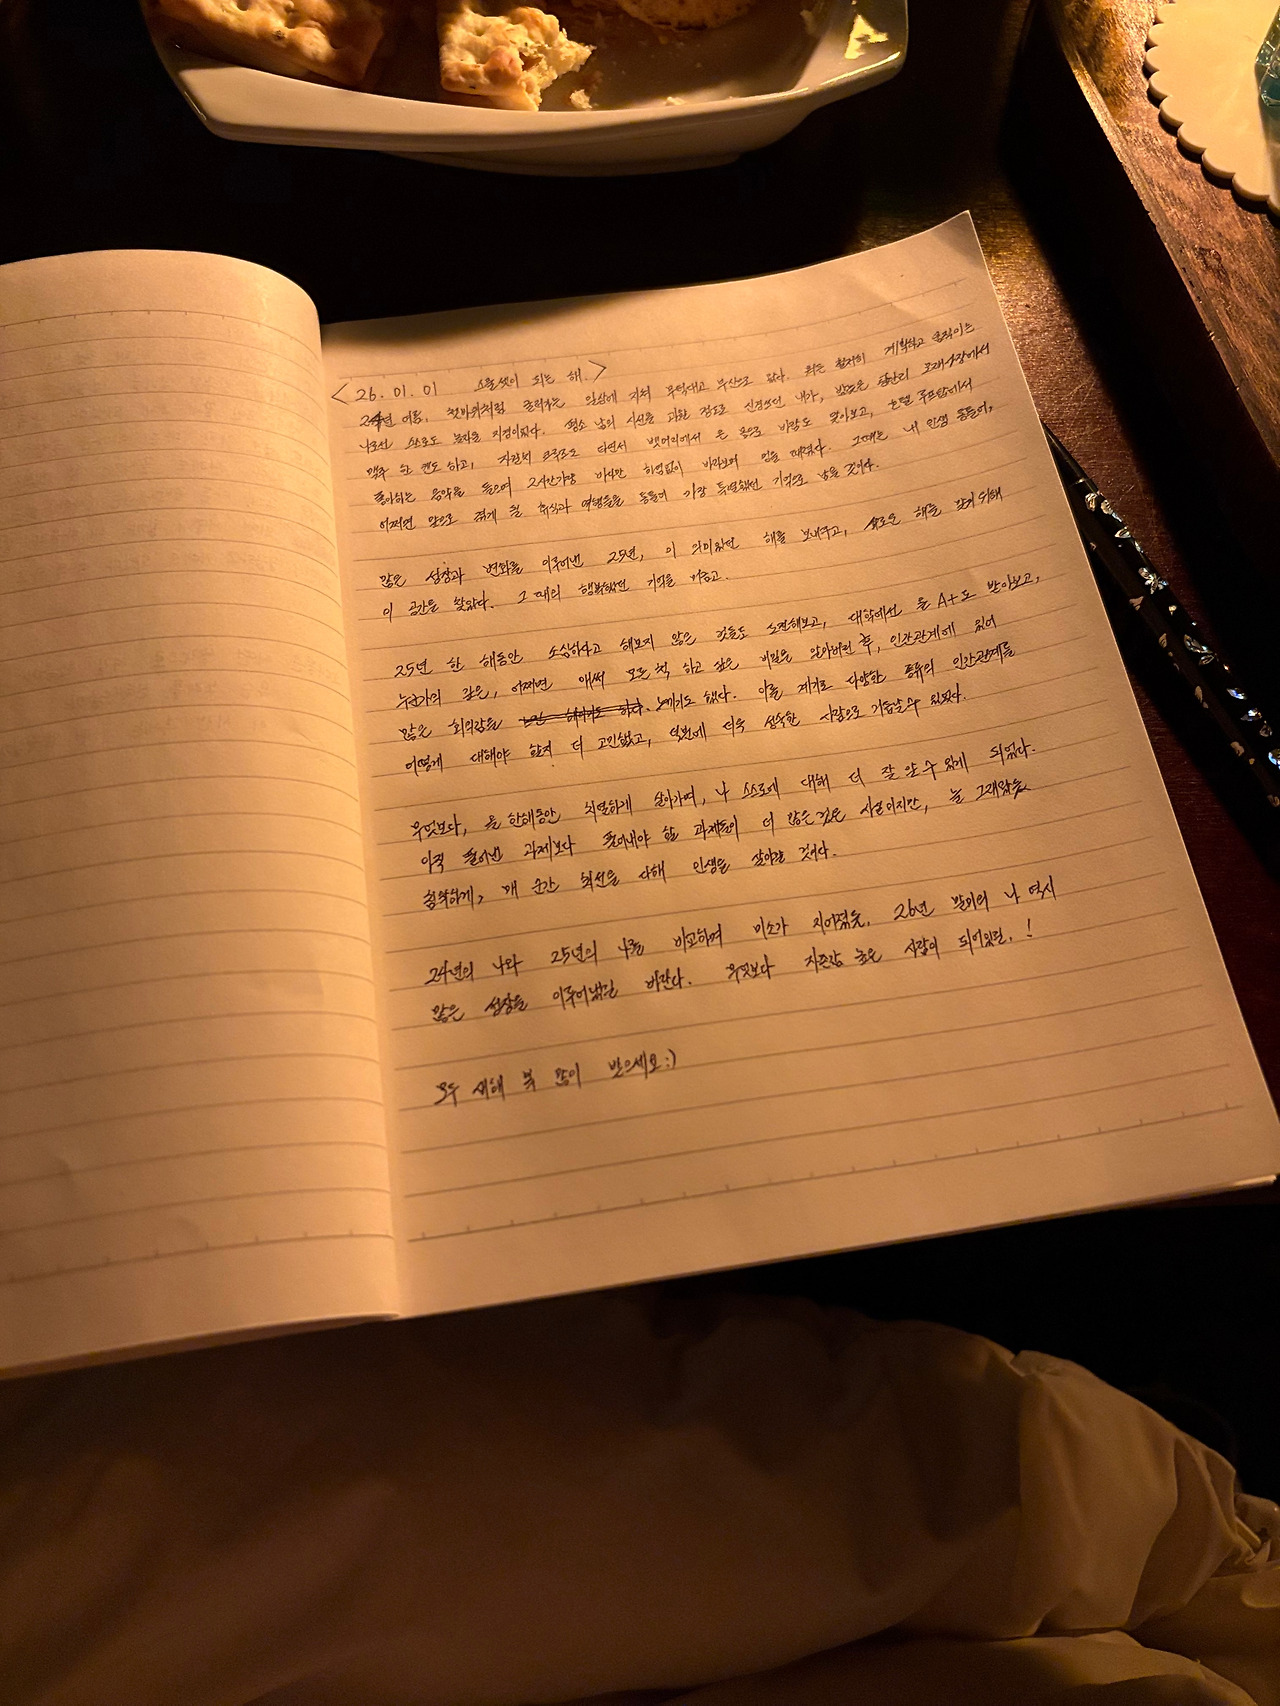 <26. 01. 01 스물셋이 되는 해.>
24년 여름, 쳇바퀴처럼 굴러가는 일상에 지쳐 무턱대고 부산으로 갔다. 뭐든 철저히 계획하고 움직이는
나로선 스스로도 놀라울 지경이었다. 평소 남의 시선을 과할 정도로 신경쓰던 내가, 밤늦은 광안리 모래사장에서
맥주 한 캔도 하고, 자전거 크루즈도 타면서 벳머리에서 온 몸으로 바람도 맞아보고, 호텔 루프탑에서
좋아하는 음악을 들으며 2시간가량 바다만 하염없이 바라보며 멍을 때렸다. 그때는 내 인생 통틀어,
어쩌면 앞으로 겪게 될 휴식과 여행들을 통틀어 가장 특별했던 기억으로 남을 것이다.
많은 성장과 변화를 이루어낸 25년, 이 의미있던 해를 보내주고, 새로운 해를 맞기 위해
이 공간을 찾았다. 그 때의 행복했던 기억을 가지고.
25년 한 해동안 소심하다고 해보지 않은 것들도 도전해보고, 대학에선 올 A+도 받아보고,
누군가의 깊은, 어쩌면 애써 모른 척 하고 싶은 비밀을 알아버린 후, 인간관계에 있어
많은 회의감을 느끼기도 했다. 이를 계기로 다양한 종류의 인간관계를
어떻게 대해야 할지 더 고민했고, 덕분에 더욱 성숙한 사람으로 거듭날 수 있었다.
무엇보다, 올 한해동안 치열하게 살아가며, 나 스스로에 대해 더 잘 알 수 있게 되었다.
아직 풀어낸 과제보다 풀어내야 할 과제들이 더 많은 것은 사실이지만, 늘 그래왔듯
침착하게, 매 순간 최선을 다해 인생을 살아갈 것이다.
24년의 나와 25년의 나를 비교하며 미소가 지어졌듯, 26년 말의의 나 역시
많은 성장을 이루어냈길 바란다. 무엇보다 자존감 높은 사람이 되어있길. !
모두 새해 복 많이 받으세요 :)